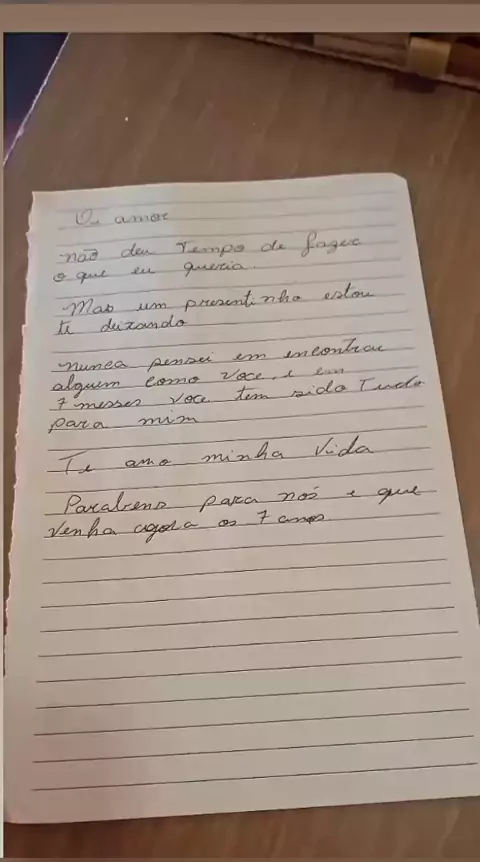 Oi amor
não deu Tempo de fazer
o que eu queria.
Mas um presentinho estou
te deixando
nunca pensei em encontrar
alguem como voce, e em
7 messes voce tem sido Tudo
para mim
Te amo minha Vida
Parabens para nós e que
venha agora os 7 anos